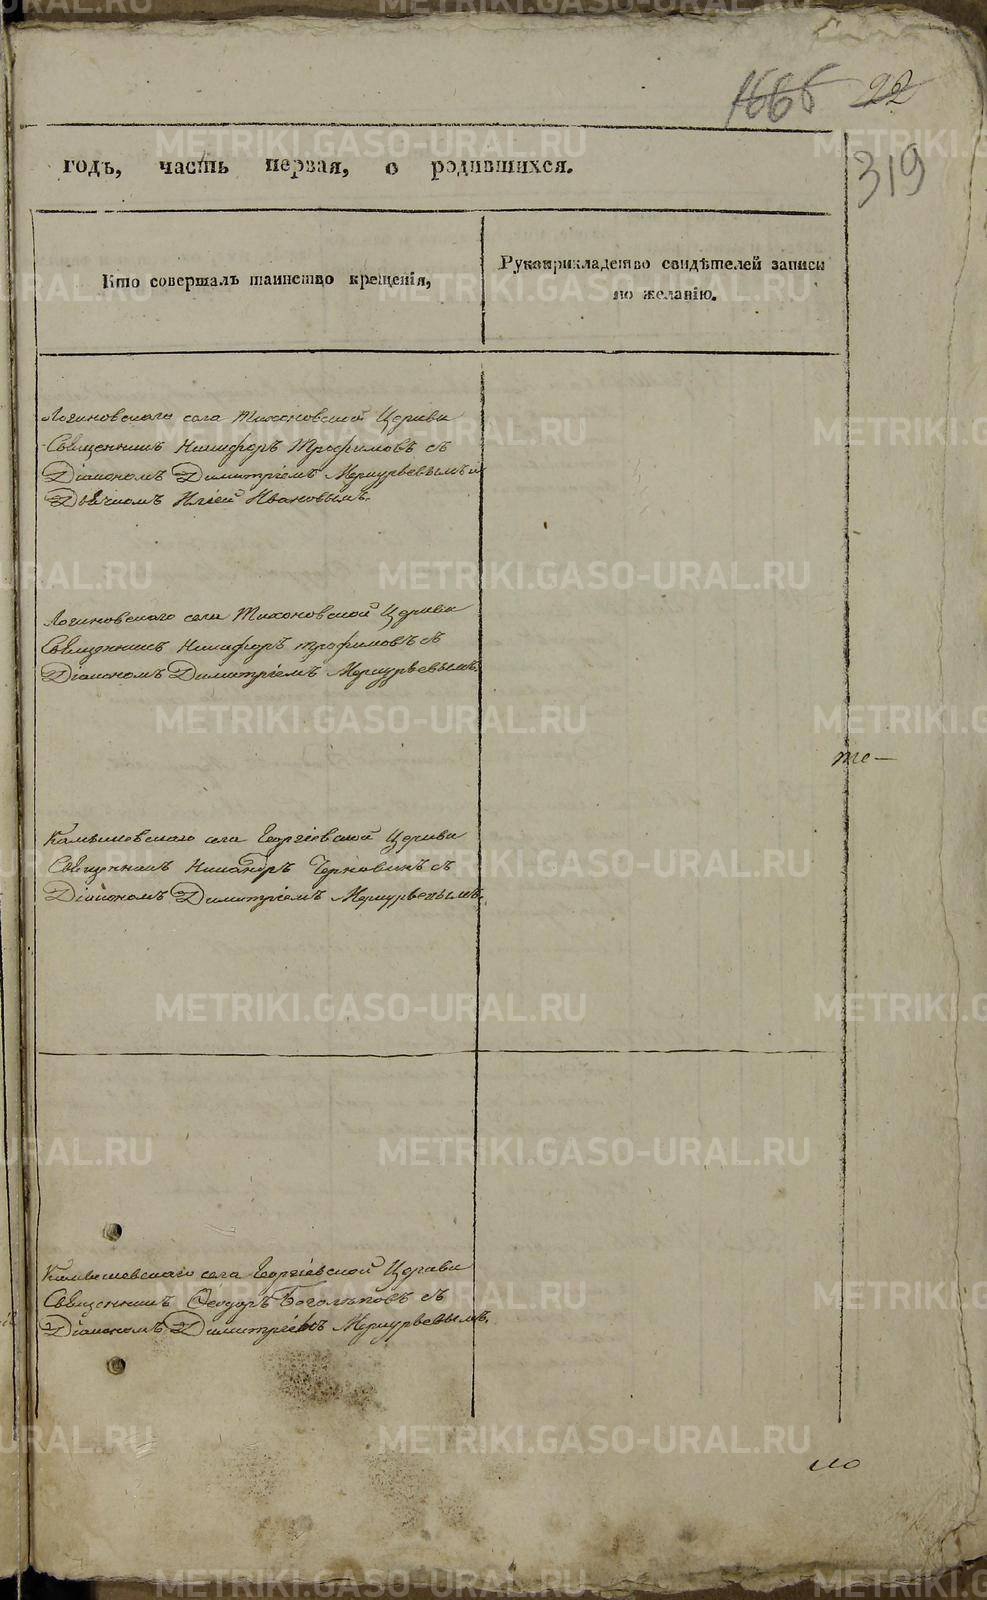 1666 22
319
годъ, часть первая, о родившихся.
Кто совершалъ таинство крещенія,
Рукоприкладство свидѣтелей записи
по желанію.
Логиновскаго села Тихоновской Церкви
Священникъ Никифоръ Трофимовъ съ
Діакономъ Димитріемъ Меркурьевымъ и
Дьячкомъ Иліей Ивановымъ.
Логиновскаго села Тихоновской Церкви
Священникъ Никифоръ Трофимовъ съ
Діакономъ Димитріемъ Меркурьевымъ.
те—
Камышевскаго села Георгіевской Церкви
Священникъ Никандръ Черновинъ съ
Діакономъ Димитріемъ Меркурьевымъ.
Камышевскаго села Георгіевской Церкви
Священникъ Ѳеодоръ Боголѣповъ съ
Діакономъ Димитріемъ Меркурьевымъ.
METRIKI.GASO-URAL.RU